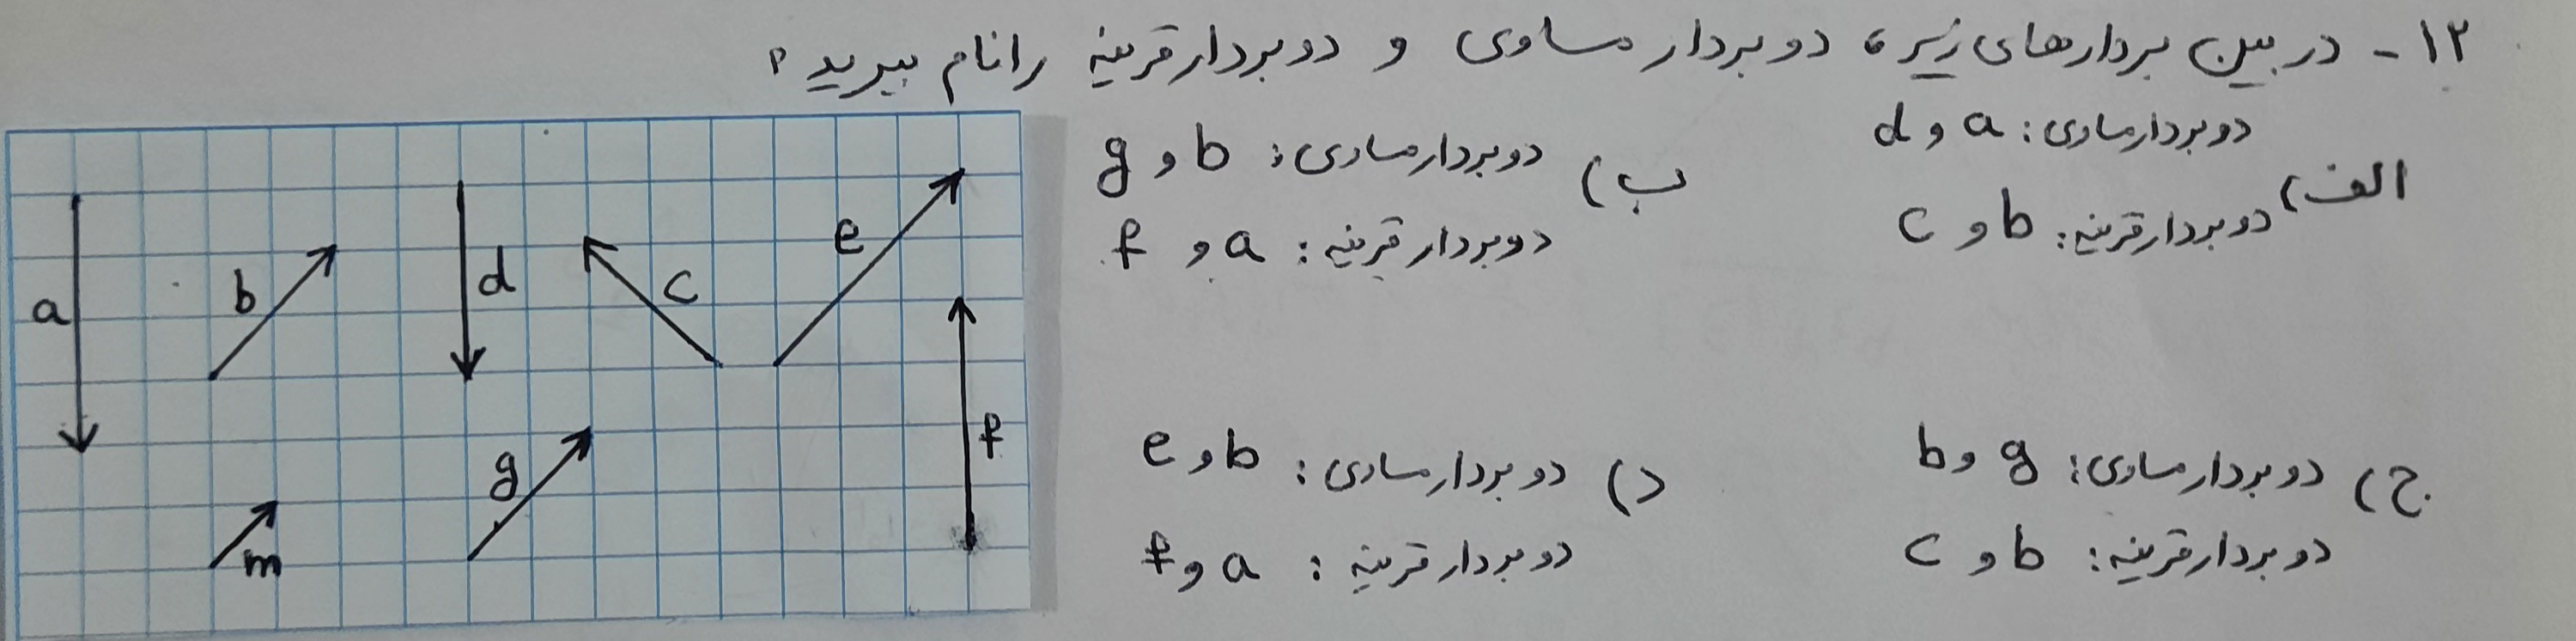 ۱۲ - در بین بردارهای زیر، دو بردار مساوی و دو بردار قرینه را نام ببرید؟
الف) دو بردار مساوی: a و d
دو بردار قرینه: b و c
ب) دو بردار مساوی: b و g
دو بردار قرینه: a و f
ج) دو بردار مساوی: g و b
دو بردار قرینه: b و c
د) دو بردار مساوی: b و e
دو بردار قرینه: a و f
a
b
d
c
e
f
g
m